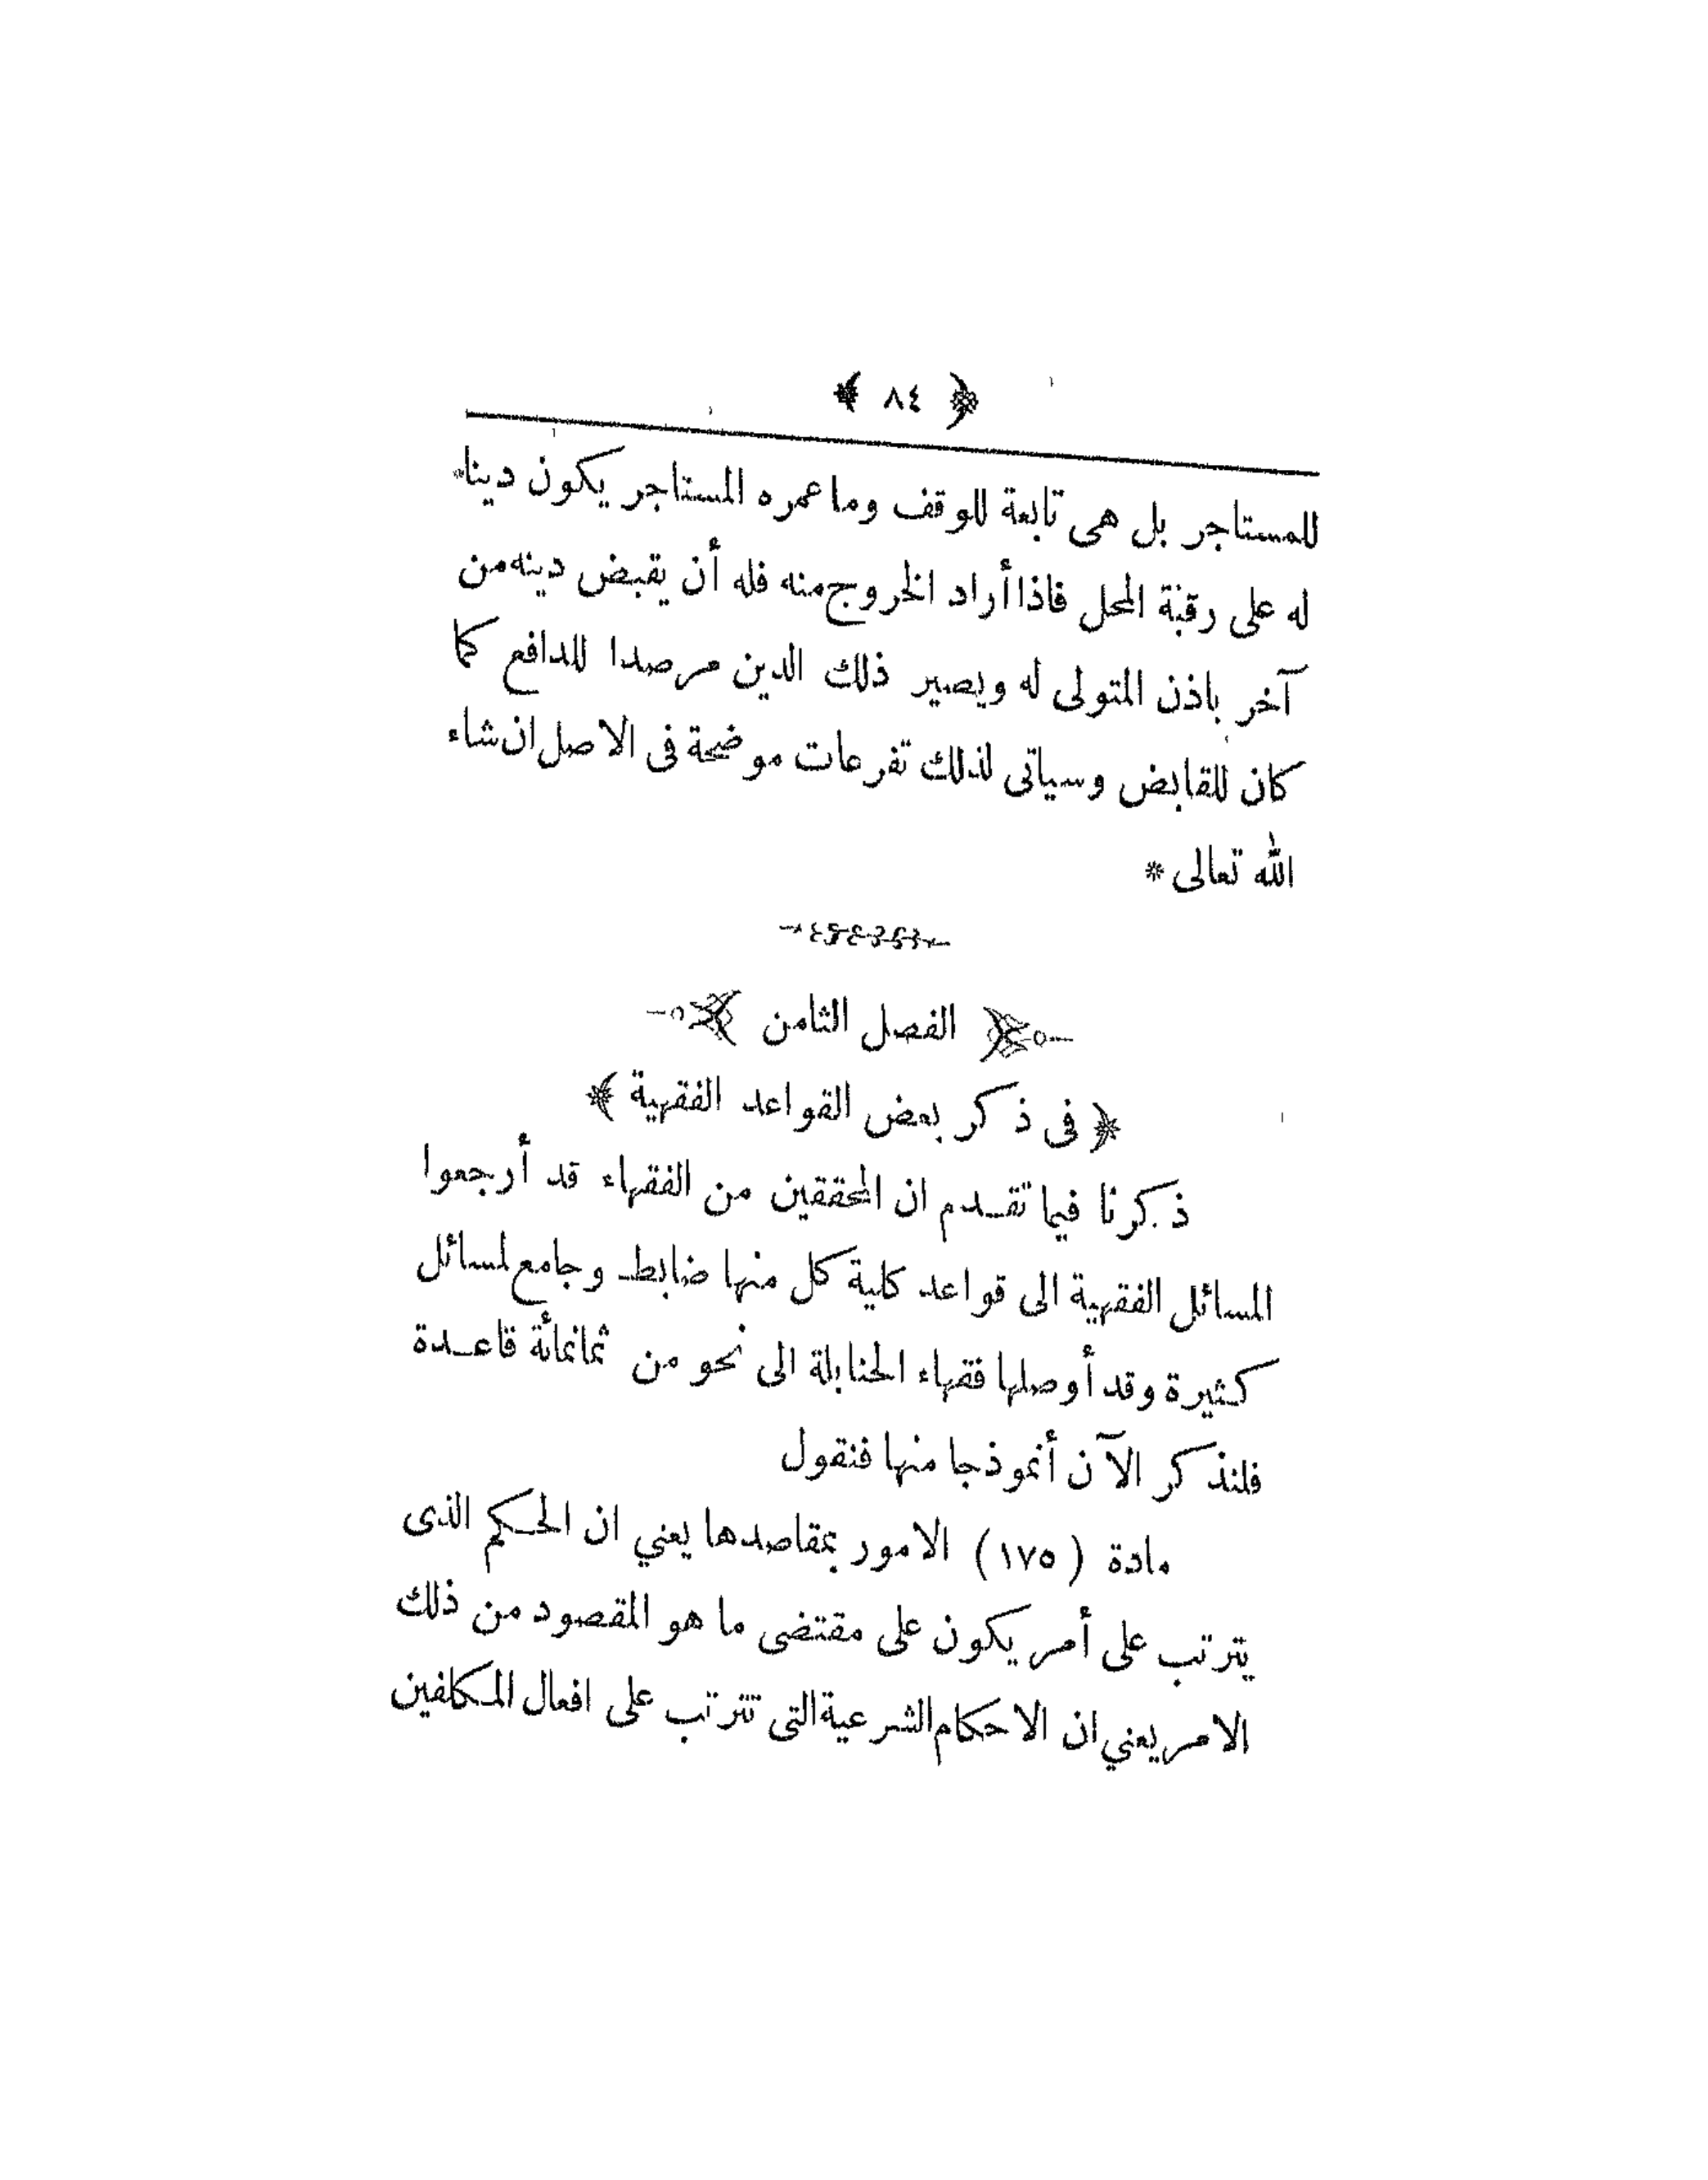 ﴿ ٨٤ ﴾
للمستاجر بل هى تابعة للوقف وما عمره المستاجر يكون دينا
له على رقبة المحل فاذا أراد الخروج منه فله أن يقبض دينه من
آخر باذن المتولى له ويصير ذلك الدين مرصدا للدافع كما
كان للقابض وسياتى لذلك تفرعات موضحة فى الاصل ان شاء
الله تعالى *
الفصل الثامن
﴿ فى ذكر بعض القواعد الفقهية ﴾
ذكرنا فيما تقدم ان المحققين من الفقهاء قد أرجعوا
المسائل الفقهية الى قواعد كلية كل منها ضابط وجامع لمسائل
كثيرة وقد أوصلها فقهاء الحنابلة الى نحو من ثمانمائة قاعدة
فلنذكر الآن أنموذجا منها فنقول
مادة ( ١٧٥ ) الامور بمقاصدها يعني ان الحكم الذى
يترتب على أمر يكون على مقتضى ما هو المقصود من ذلك
الامر يعني ان الاحكام الشرعية التى تترتب على افعال المكلفين